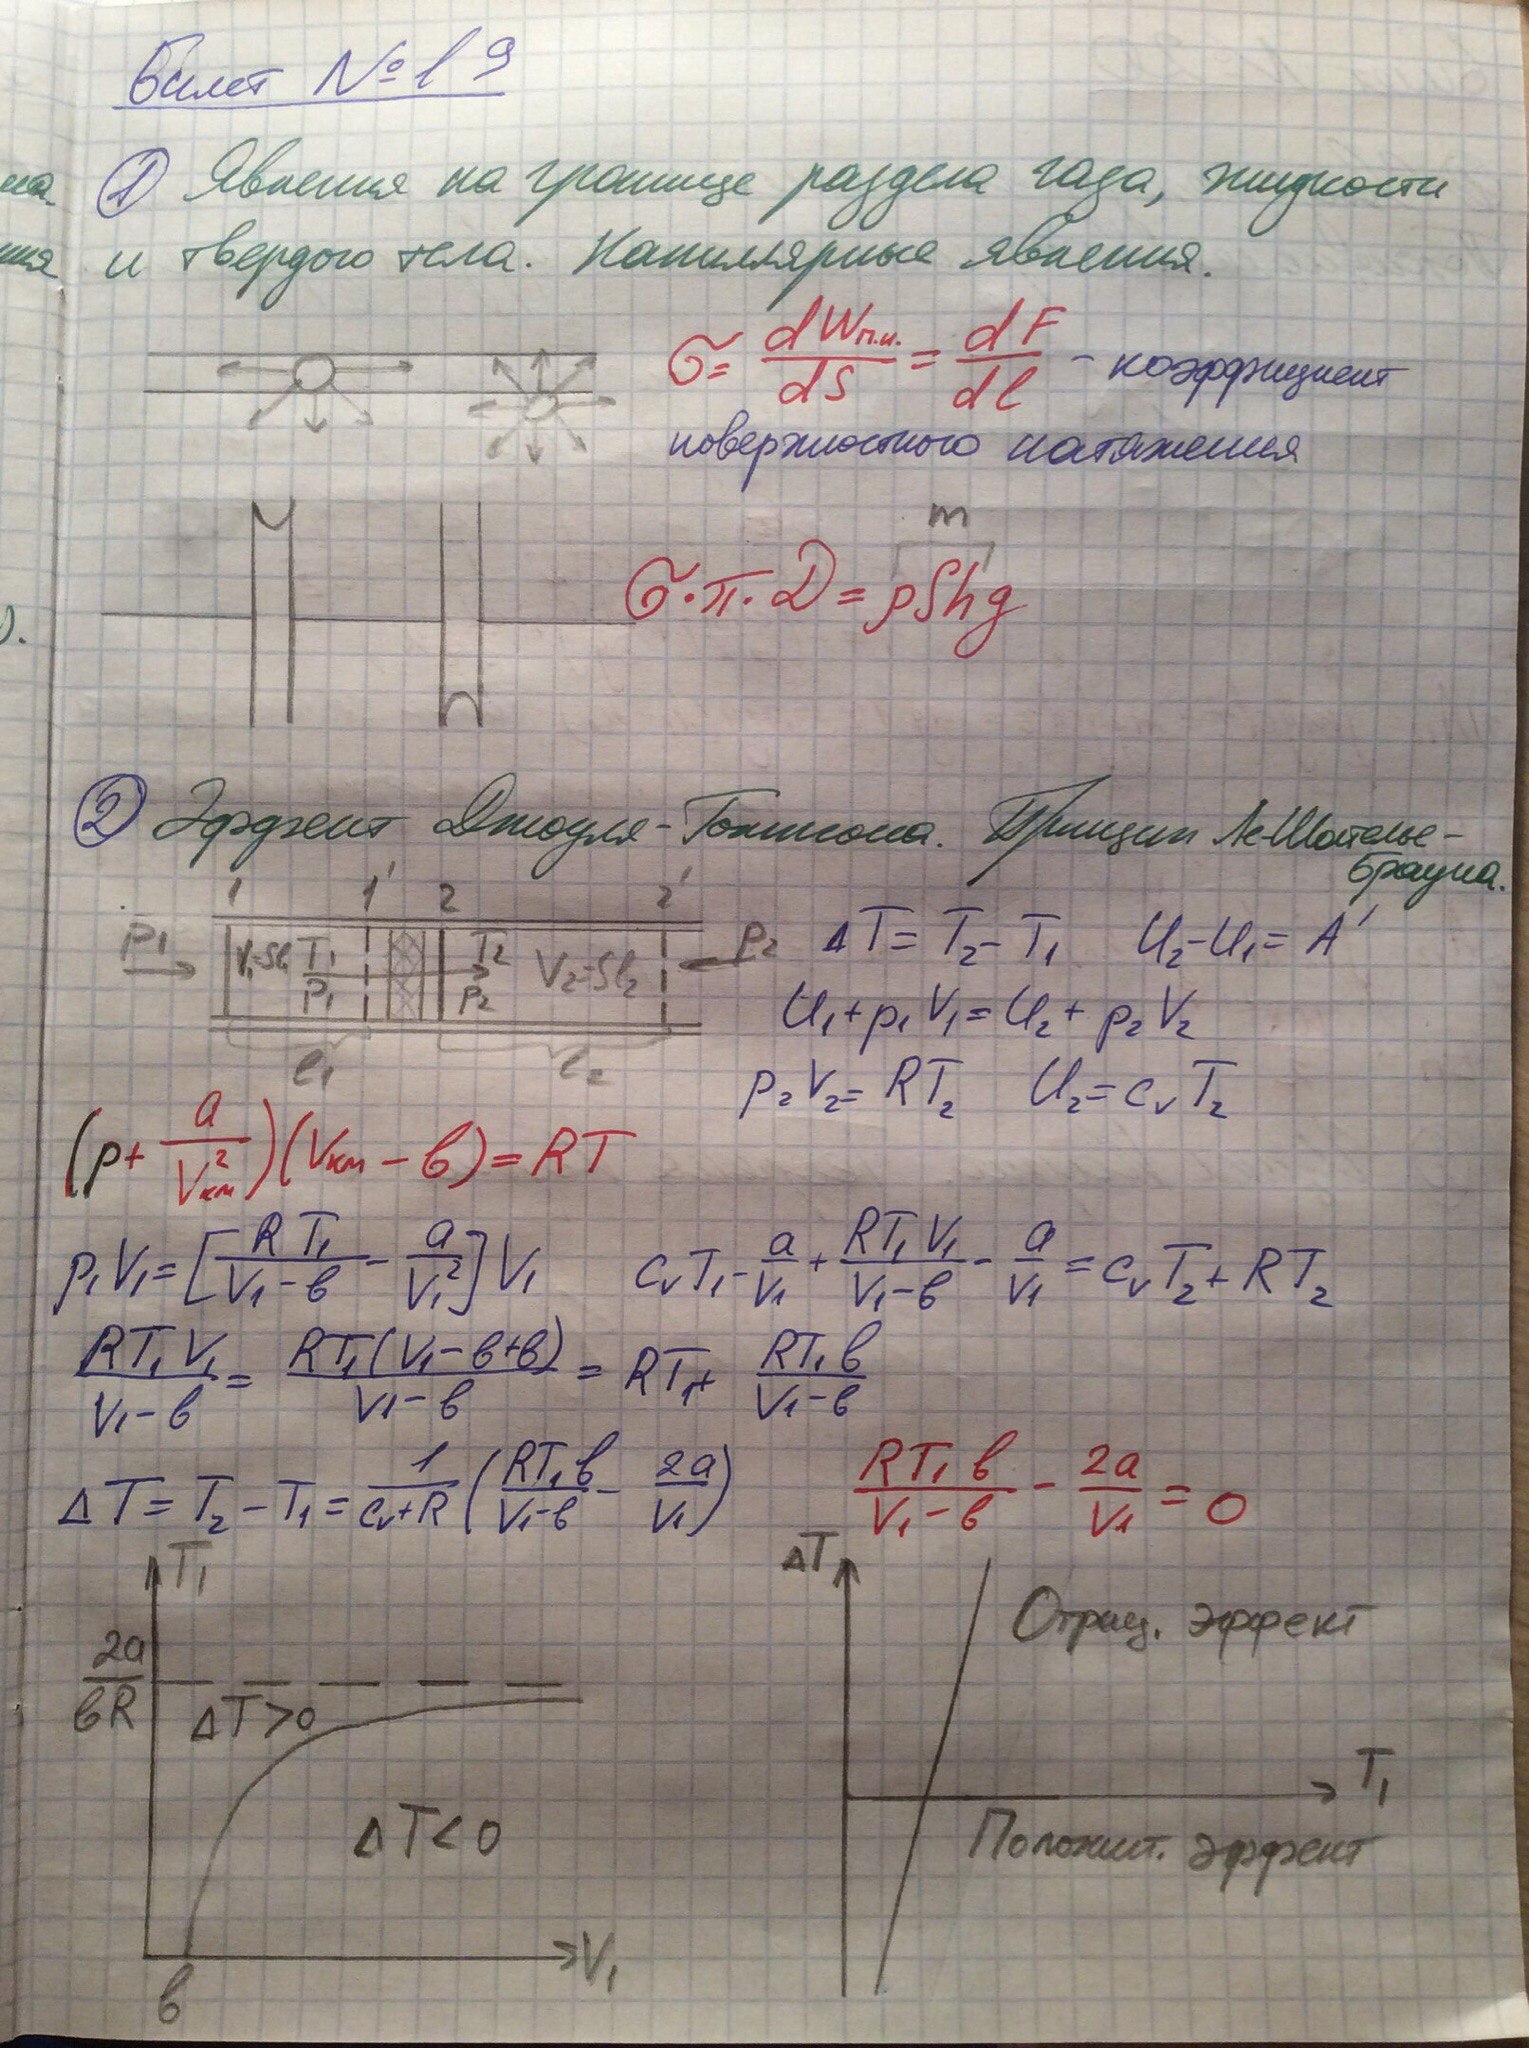 Билет №19
① Явления на границе раздела газа, жидкости
и твердого тела. Капиллярные явления.
σ = dWп.н./dS = dF/dl - коэффициент
поверхностного натяжения
m
σ·π·D = ρShg
② Эффект Джоуля-Томпсона. Принцип Ле-Шателье-
Брауна.
1 1' 2 2'
p₁ V₁=Sl₁ T₁ p₁ T₂ p₂ V₂=Sl₂ p₂
l₁ l₂
ΔT = T₂ - T₁ U₂-U₁ = A'
U₁ + p₁V₁ = U₂ + p₂V₂
p₂V₂ = RT₂ U₂ = cᵥT₂
(p + a/Vкм²)(Vкм - в) = RT
p₁V₁ = [RT₁/(V₁-в) - a/V₁²]V₁ cᵥT₁ - a/V₁ + RT₁V₁/(V₁-в) - a/V₁ = cᵥT₂ + RT₂
RT₁V₁/(V₁-в) = RT₁(V₁-в+в)/(V₁-в) = RT₁ + RT₁в/(V₁-в)
ΔT = T₂ - T₁ = 1/(cᵥ+R) (RT₁в/(V₁-в) - 2a/V₁) RT₁в/(V₁-в) - 2a/V₁ = 0
T₁
2a/вR
ΔT>0
ΔT<0
V₁
в
ΔT
Отриц. эффект
T₁
Положит. эффект